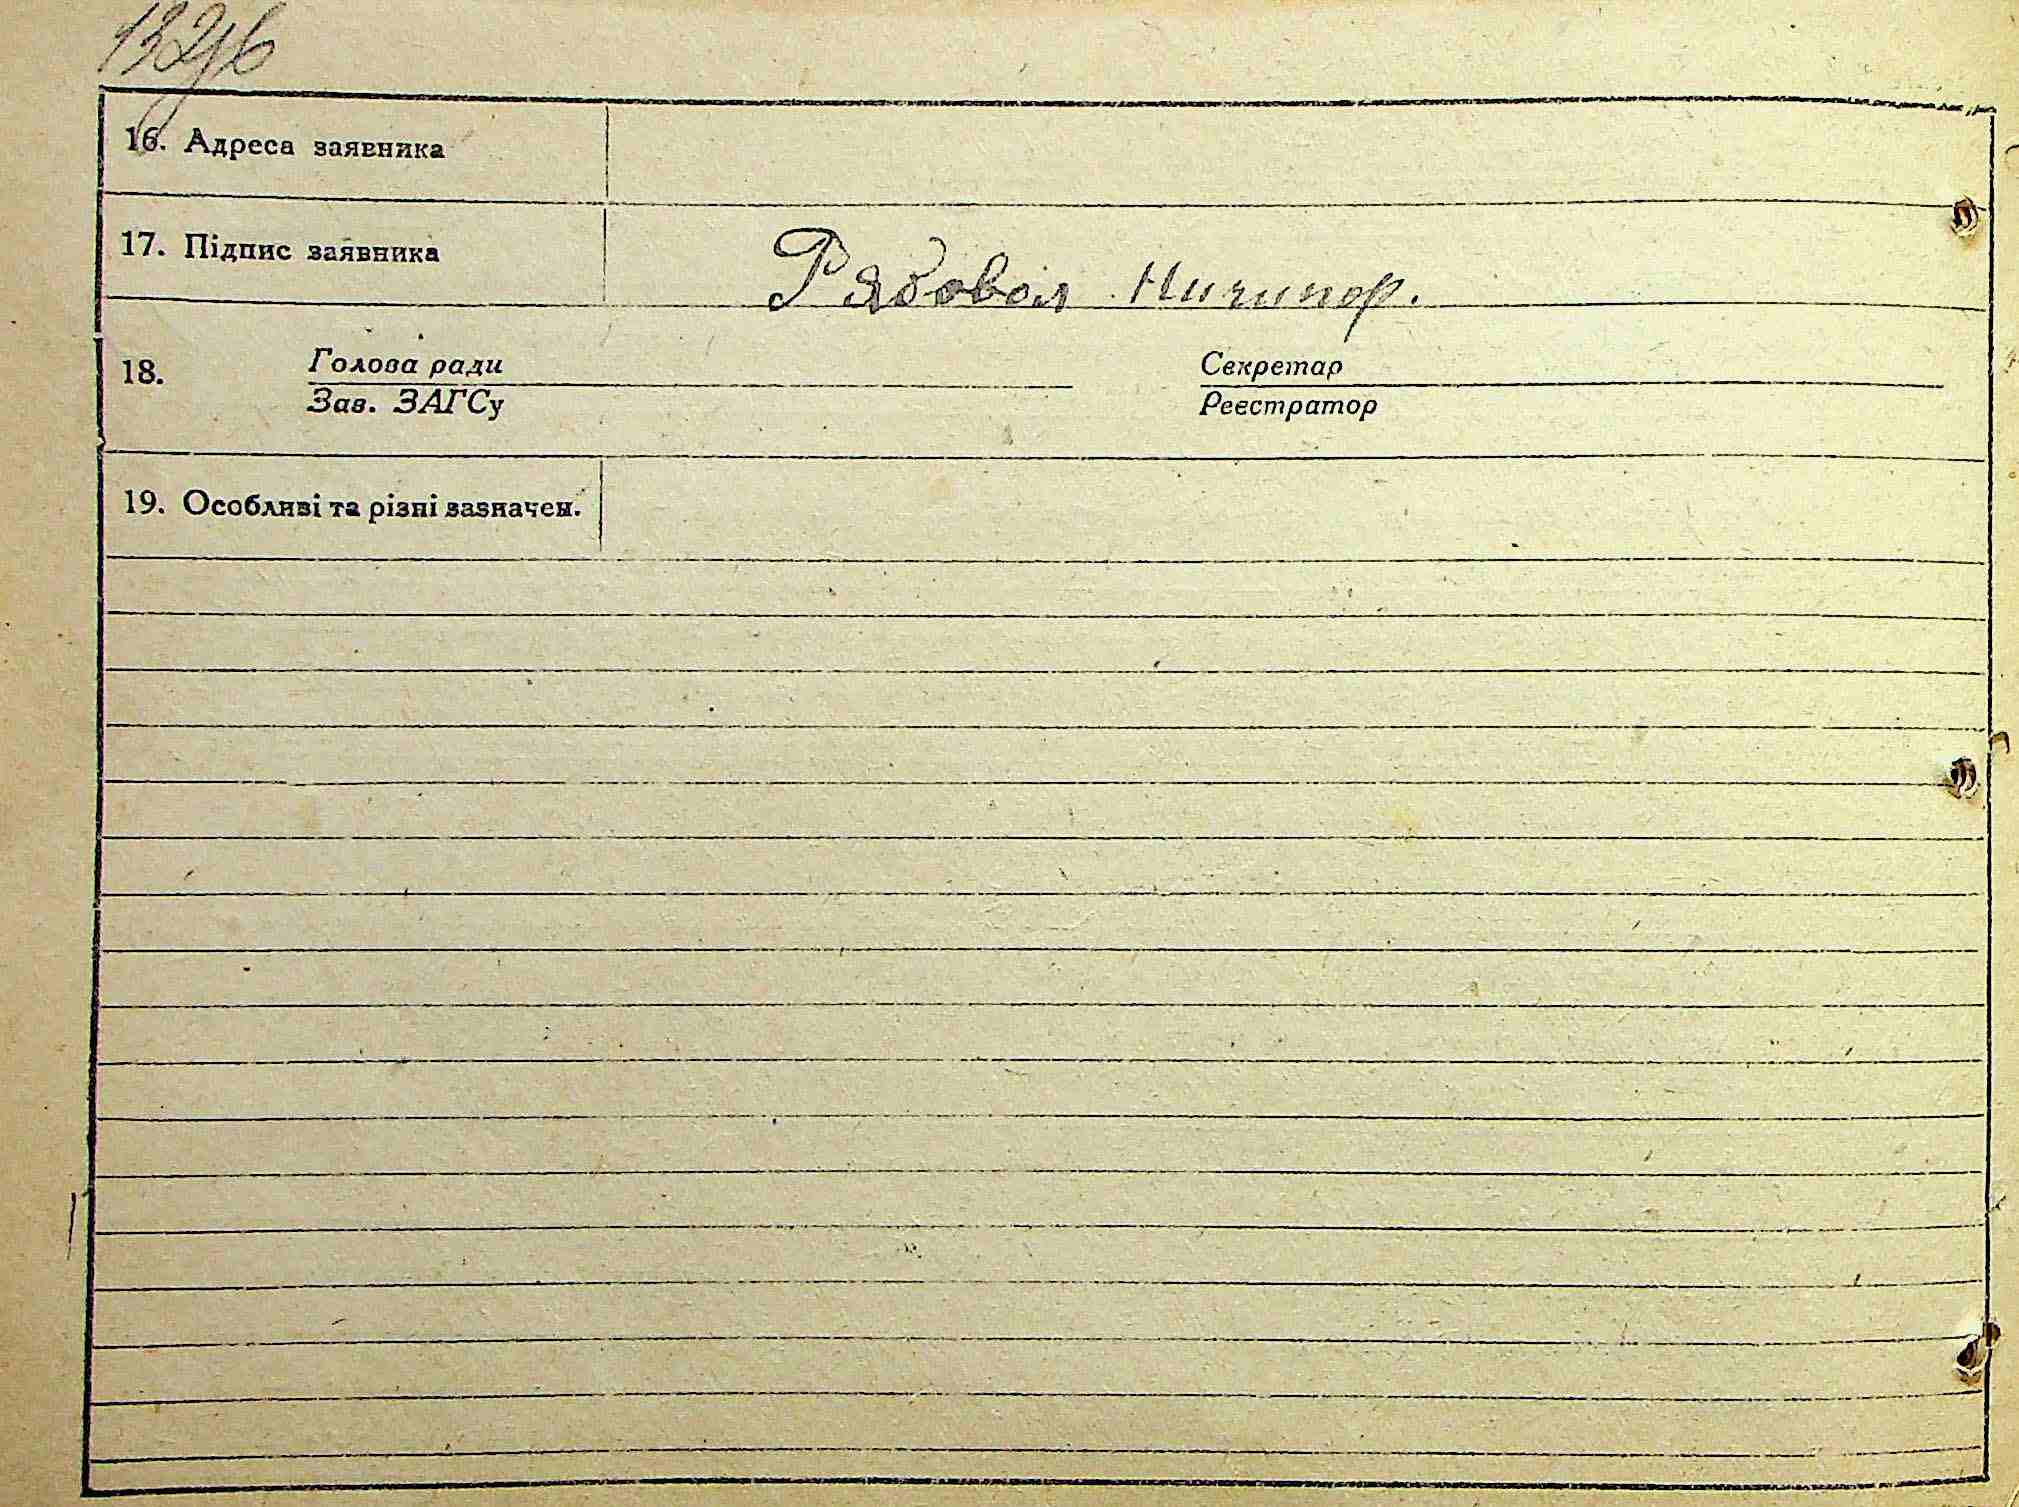 16. Адреса заявника
17. Підпис заявника Рябовол Ничипор.
18. Голова ради Секретар
Зав. ЗАГСу Реєстратор
19. Особливі та різні зазначен.